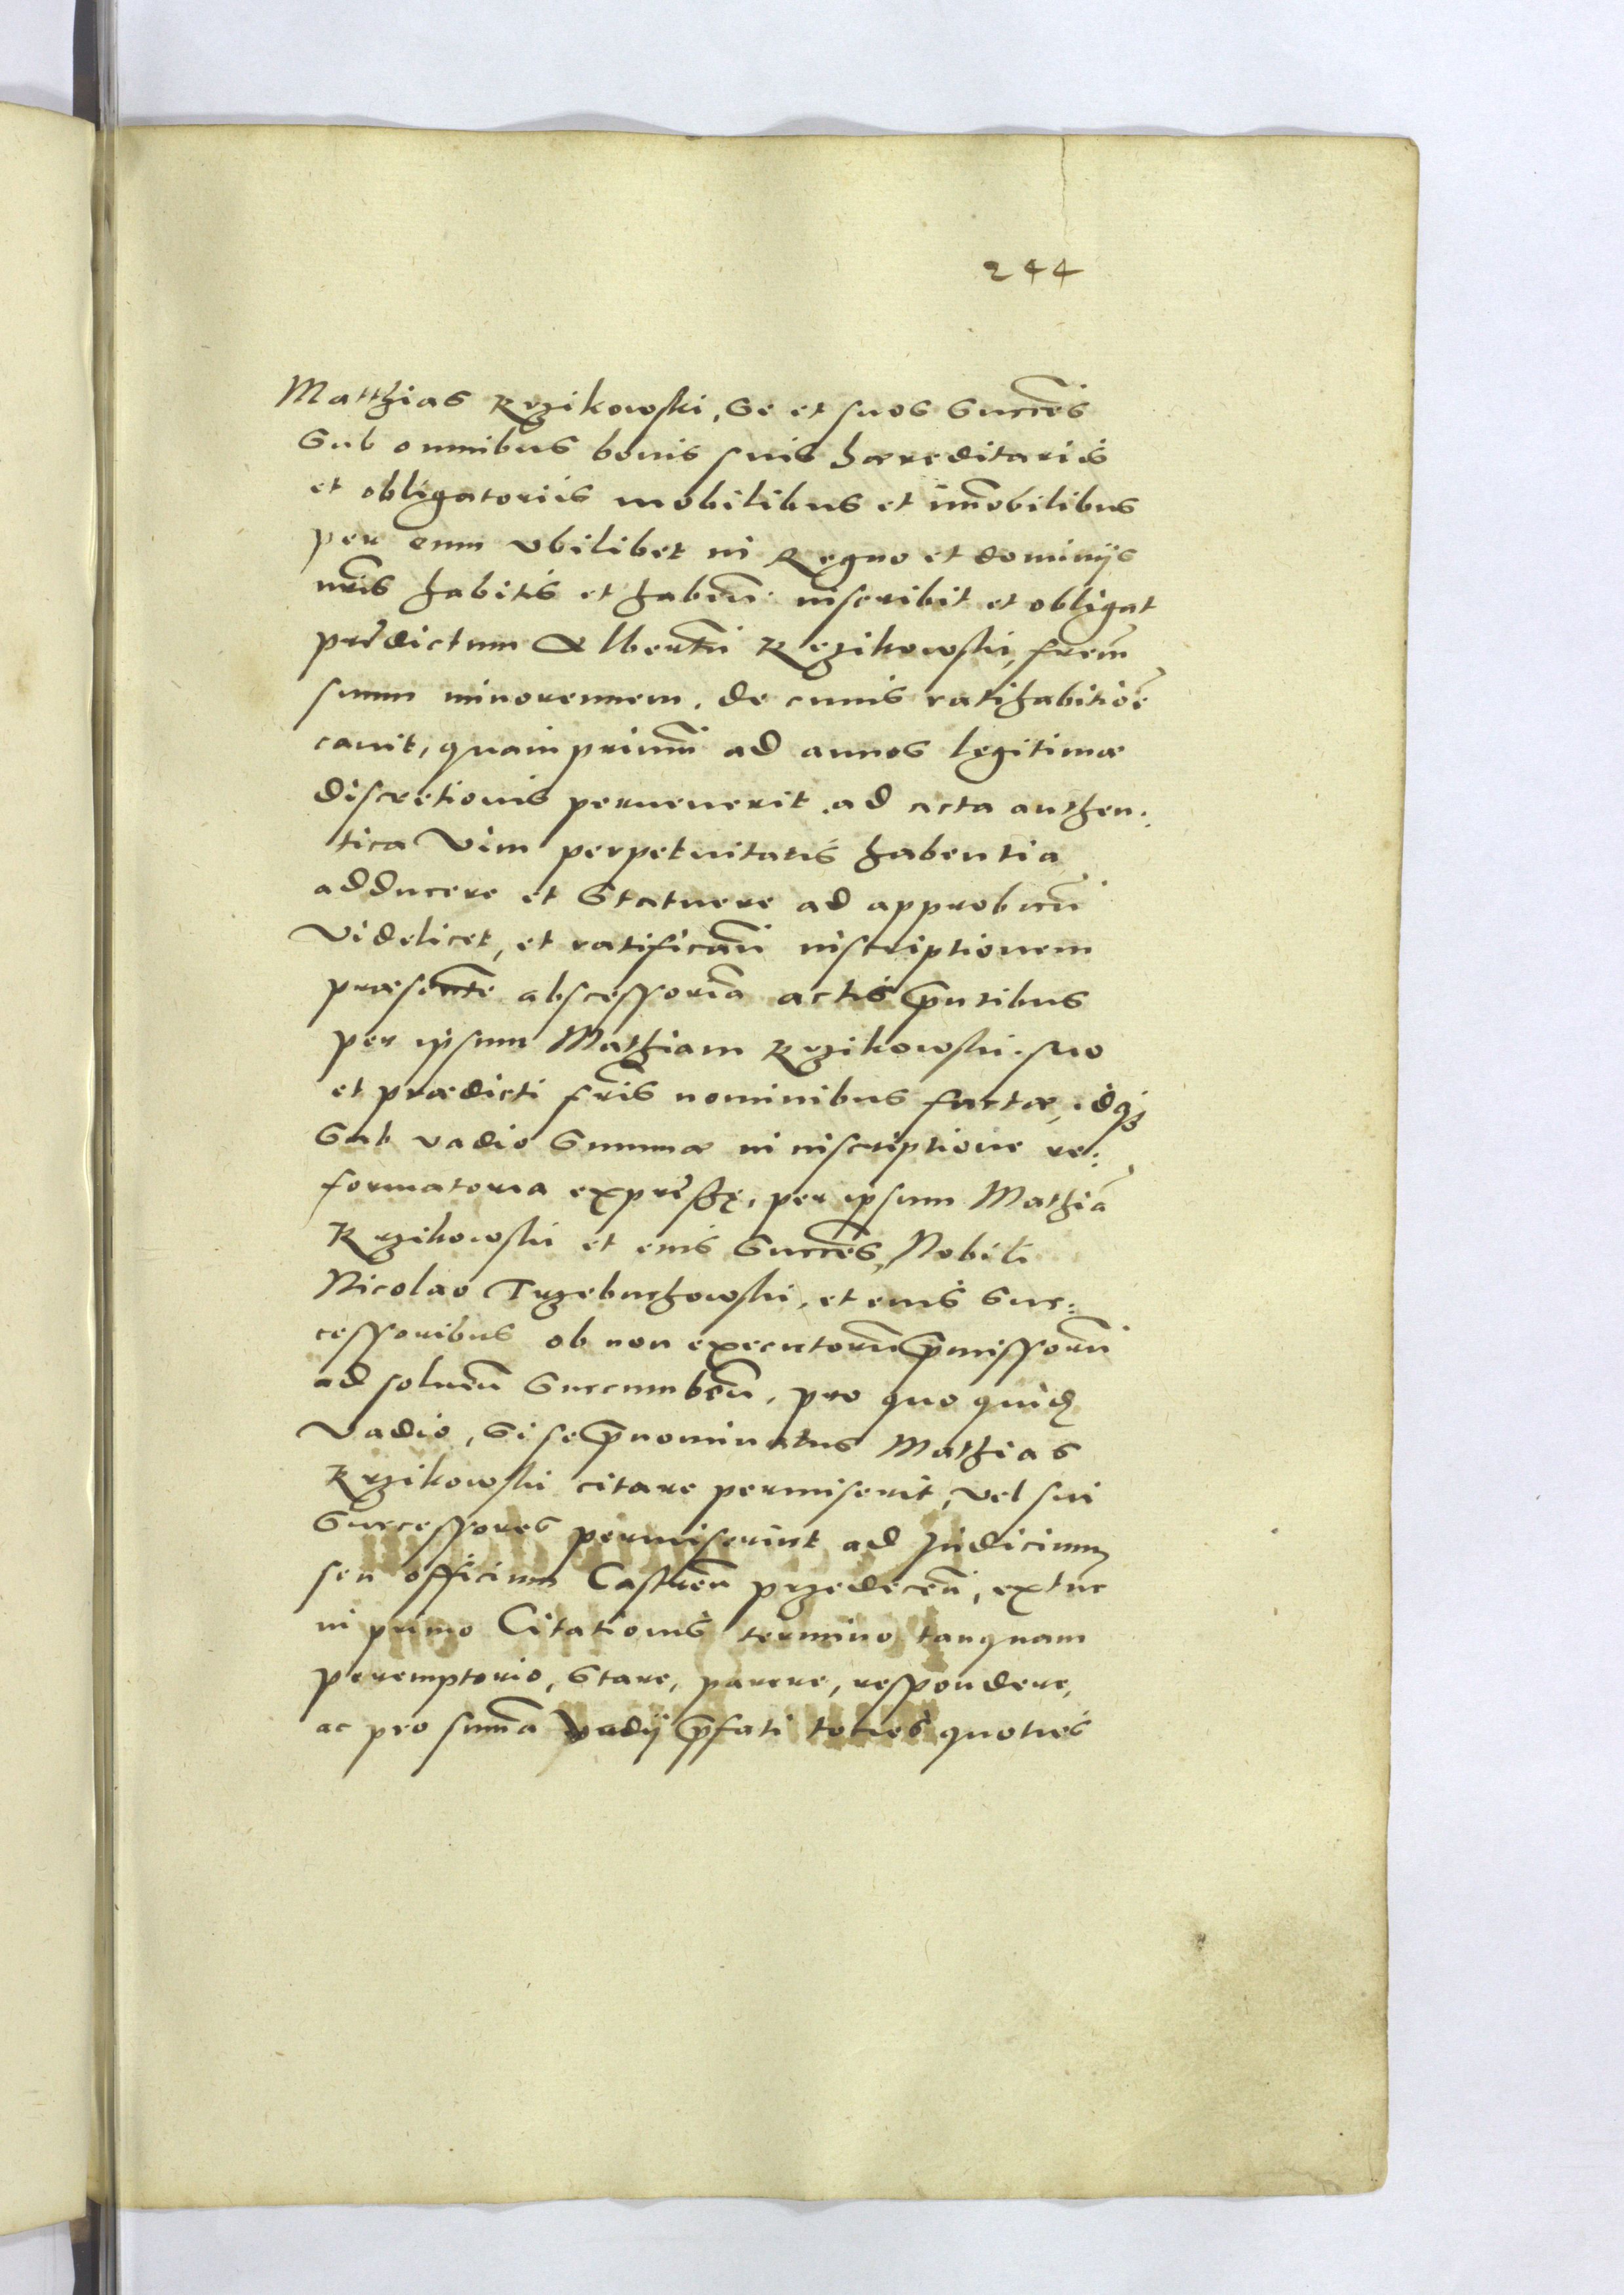 244
Matthias Rzikowski, se et suos succes̃
sub omnibus bonis suis haereditariis
et obligatoriis mobilibus et im̃obilibus
per eum vbilibet in Regno et dominijs
nr̃is habitis et habeñ. inscribit et obligat
prẽdictum Albertũ Rzikowski, frẽm
suum minorennem, de cuius ratihabitiõe
cauit, quamprimũ ad annos legitimae
discretionis peruenerit, ad acta authen:
tica vim perpetuitatis habentia
adducere et statuere ad approbañ
videlicet, et ratificañ inscriptionem
praesentẽ abscessoriã actis p̃ntibus
per ipsum Mathiam Rzikowski, suo
et praedicti fr̃is nominibus factae, idq3
sub vadio summae in inscriptione re:
formatoria exprẽssę, per ipsum Mathiã
Rzikowski et eius succes̃, Nobili
Nicolao Trzebuchowski, et eius suc:
cessoribus ob non executorũ p̃missorũ
ad solueñ succumbeñ, pro quo quid
vadio, si se p̃nominatus Mathias
Rzikowski citare permiserit, vel sui
successores permiserint ad Judicium
seu officium Castreñ przedeceñ, extunc
in primo Citationis termino tanquam
peremptorio, stare, parere, respondere,
ac pro sum̃a vadij p̃fati toties quoties